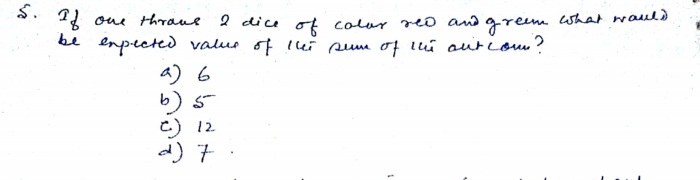 5. If one throws 2 dice of color red and green what would
be expected value of the sum of the outcome?
a) 6
b) 5
c) 12
d) 7.